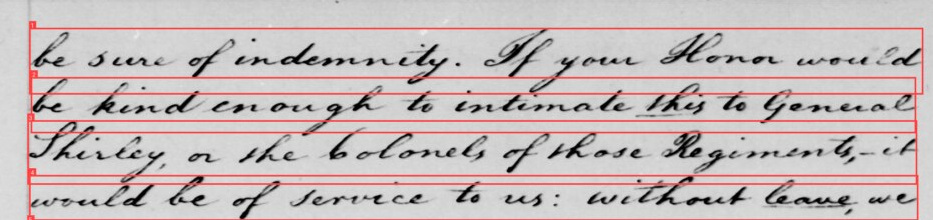 be sure of indemnity. If your Honor would
be kind enough to intimate this to General
Shirley, or the Colonels of those Regiments,- it
would be of service to us: without leave, we